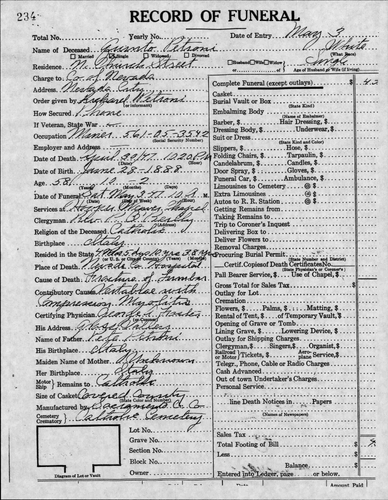 234
RECORD OF FUNERAL
Total No. Yearly No. Date of Entry May 3
Name of Deceased Petroni White
Married Single Widowed Divorced (What Race)
Residence N. Church Street Single
Husband Widow Wife Age of Husband or Wife (if living)
Charge to Co. of Nevada
Address Nevada City
Order given by Petroni
How Secured Phone
If Veteran, State War
Occupation Miner 561-05-3542
Employer and Address
Date of Death April 30 1947 1220 P.M.
Date of Birth June 28-1888
Age 58 10 2
Date of Funeral Sat. May 3 1947 10 A.M.
Services at Hooper Weaver Chapel
Clergyman Rev. P. G.
Religion of the Deceased Catholic
Birthplace Italy
Resided in the State
Place of Death Nevada Co. Hospital
Cause of Death Fracture of Lumbar
Contributory Causes Vertebra with
Compression Myelitis
Certifying Physician George A. Foster
His Address Grass Valley
Name of Father Pete Petroni
His Birthplace Italy
Maiden Name of Mother Unknown
Her Birthplace Italy
Motor Ship Remains to Catholic
Size of Casket Covered Country
(State Color and Number)
Manufactured by Sacramento C. Co.
Cemetery Crematory Catholic Cemetery
Lot No.
Grave No.
Section No.
Block No.
Owner
Diagram of Lot or Vault
Complete Funeral (except outlays) $
Casket
Burial Vault or Box
(State Kind)
Embalming Body
(Name of Embalmer)
Barber, $ Hair Dressing, $
Dressing Body, $ Underwear, $
Suit or Dress
(State Kind and Color)
Slippers, $ Hose, $
Folding Chairs, $ Tarpaulin, $
Candelabrum, $ Candles, $
Door Spray, $ Gloves, $
Funeral Car, $ Ambulance, $
Limousines to Cemetery @ $
Extra Limousines @ $
Autos to R. R. Station @ $
Getting Remains from
Taking Remains to
Trip to Coroner's Inquest
Delivering Box to
Deliver Flowers to
Removal Charges
Procuring Burial Permit
Certif. Copies of Death Certificates No.
(State Physician's or Coroner's)
Pall Bearer Service, $ Use of Chapel, $
Gross Total for Sales Tax $
Outlay for Lot
Cremation
Flowers, $ Palms, $ Matting, $
Rental of Tent, $ of Temporary Vault, $
Opening of Grave or Tomb
Lining Grave, $ Lowering Device, $
Outlay for Shipping Charges
Clergyman, $ Singers, $ Organist, $
Railroad or Motor Tickets, $ Aeroplane Service, $
Telegr., Phone, Cable or Radio Charges
Cash Advanced
Out of town Undertaker's Charges
Personal Service
line Death Notices in Papers $
(Names of Newspapers)
Sales Tax $
Total Footing of Bill $
Less $
Balance $
Entered into Ledger, page or below.
Amount Paid